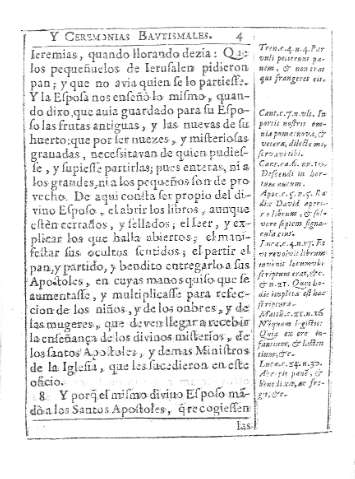 Y CEREMONIAS BAVTISMALES. 4
Ieremias, quando llorando dezia: Que
los pequeñuelos de Ierusalen pidieron
pan; y que no avia quien se lo partiesse.
Y la Esposa nos enseñó lo mismo, quan-
do dixo, que avia guardado para su Espo-
so las frutas antiguas, y las nuevas de su
huerto; que por ser nuezes, y misteriosas
granadas, necessitavan de quien pudies-
se, y supiesse partirlas; pues enteras, ni a
los grandes, ni a los pequeños son de pro-
vecho. De aqui consta ser propio del di-
vino Esposo, el abrir los libros, aunque
estèn cerrados, y sellados; el leer, y ex-
plicar los que halla abiertos; el mani-
festar sus ocultos sentidos; el partir el
pan, y partido, y bendito entregarlo a sus
Apostoles, en cuyas manos quiso que se
aumentasse, y multiplicasse para refec-
cion de los niños, y de los onbres, y de
las mugeres, que deven llegar a recebir
la enseñanza de los divinos misterios, de
los santos Apostoles, y demas Ministros
de la Iglesia, que les sucedieron en este
oficio.
8. Y porq̃ el mismo divino Esposo mā-
dò a los Santos Apostoles, q̃ recogiessen
las
Tren. c. 4. n. 4. Par
vuli petierunt pa-
nem, & non erat
qui frangeret eis.
Cant. c. 7. n. vlt. In
portis nostris om-
nia poma nova, &
vetera, dilecte mi,
servavi tibi.
Cant. c. 6. n. 10.
Descendi in hor-
tum nucum.
Apoc. c. 5. n. 5. Ra
dix David aperi-
re librum, & sol-
vere septem signa-
cula eius.
Luc. c. 4. n. 17.
revolvit librum
scripturas, &c.
scriptura.
Matth. c. 21. n. 16
Nunquam legistis:
Quia ex ore in-
fantium, & lacten
tium, &c.
Luc. c. 24. n. 30.
Accepit panē, &
benedixit, ac fre-
git, &c.